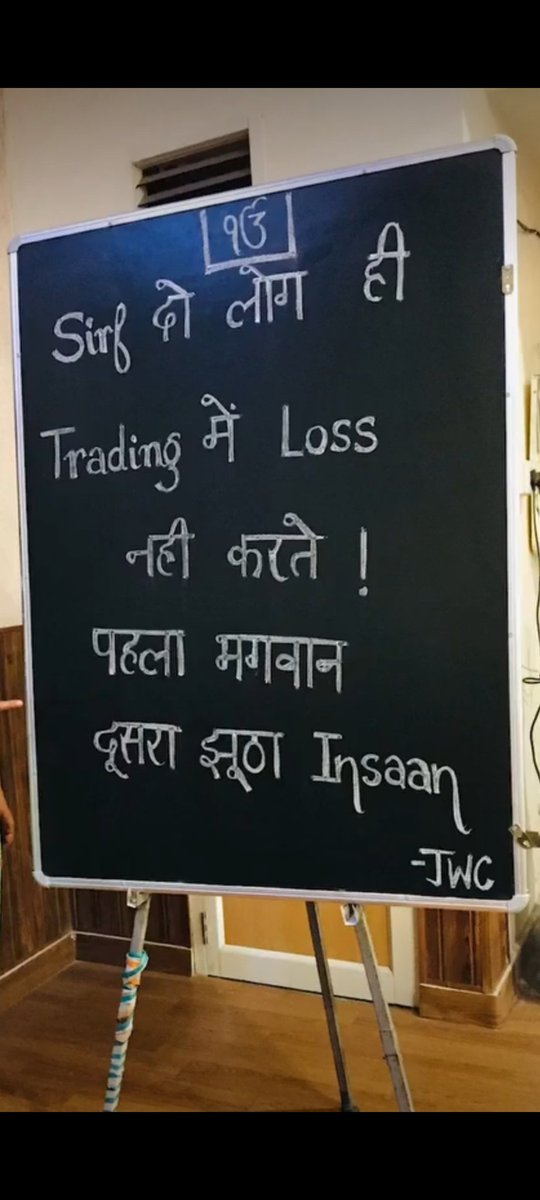 ੴ
Sirf दो लोग ही
Trading में Loss
नही करते !
पहला भगवान
दूसरा झूठा Insaan
-JWC